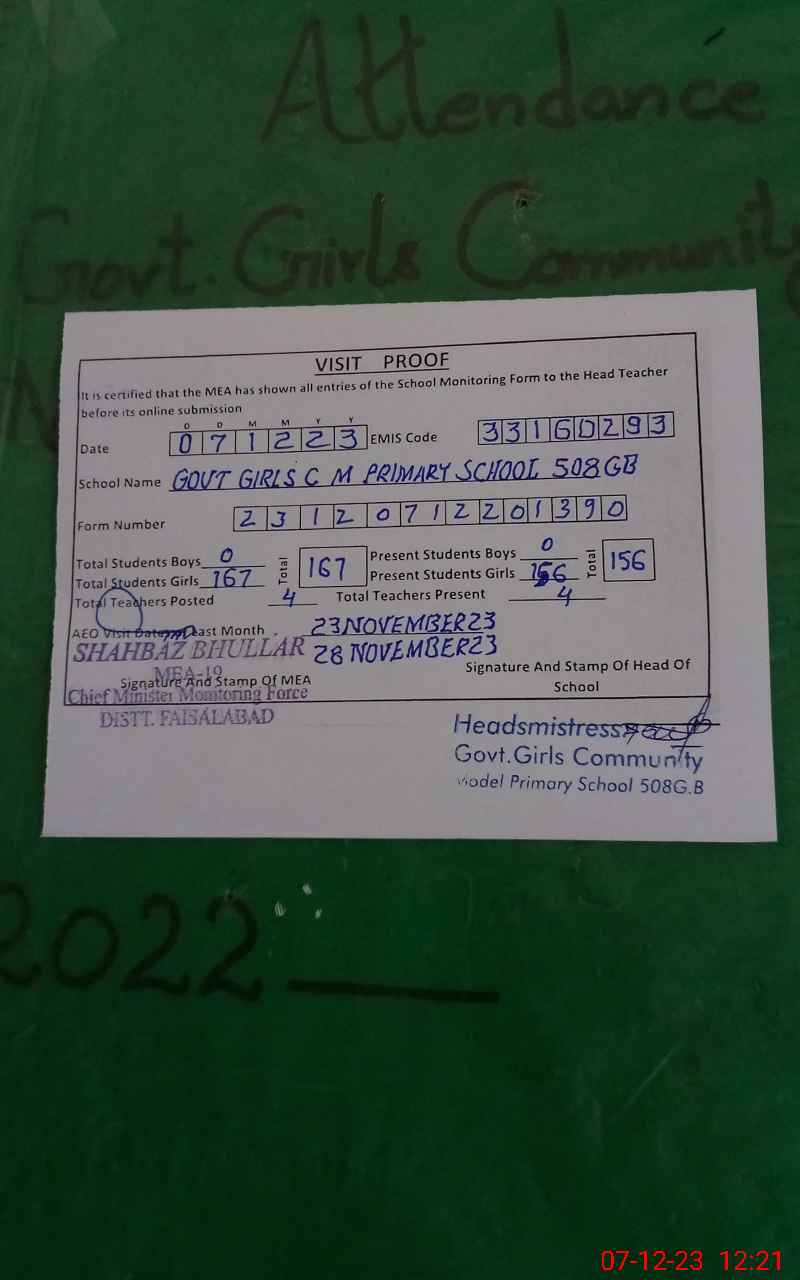 Attendance
Govt. Girls Community
VISIT PROOF
It is certified that the MEA has shown all entries of the School Monitoring Form to the Head Teacher
before its online submission
D D M M Y Y
Date 0 7 1 2 2 3 EMIS Code 3 3 1 6 0 2 9 3
School Name GOVT GIRLS C M PRIMARY SCHOOL 508 GB
Form Number 2 3 1 2 0 7 1 2 2 0 1 3 9 0
Total Students Boys 0 Total 167 Present Students Boys 0 Total 156
Total Students Girls 167 Present Students Girls 156
Total Teachers Posted 4 Total Teachers Present 4
AEO Visit Date Last Month 23 NOVEMBER 23
SHAHBAZ BHULLAR 28 NOVEMBER 23
MEA-19
Signature And Stamp Of MEA Signature And Stamp Of Head Of School
Chief Minister Monitoring Force
DISTT. FAISALABAD
Headsmistress
Govt.Girls Community
Model Primary School 508G.B
2022
07-12-23 12:21